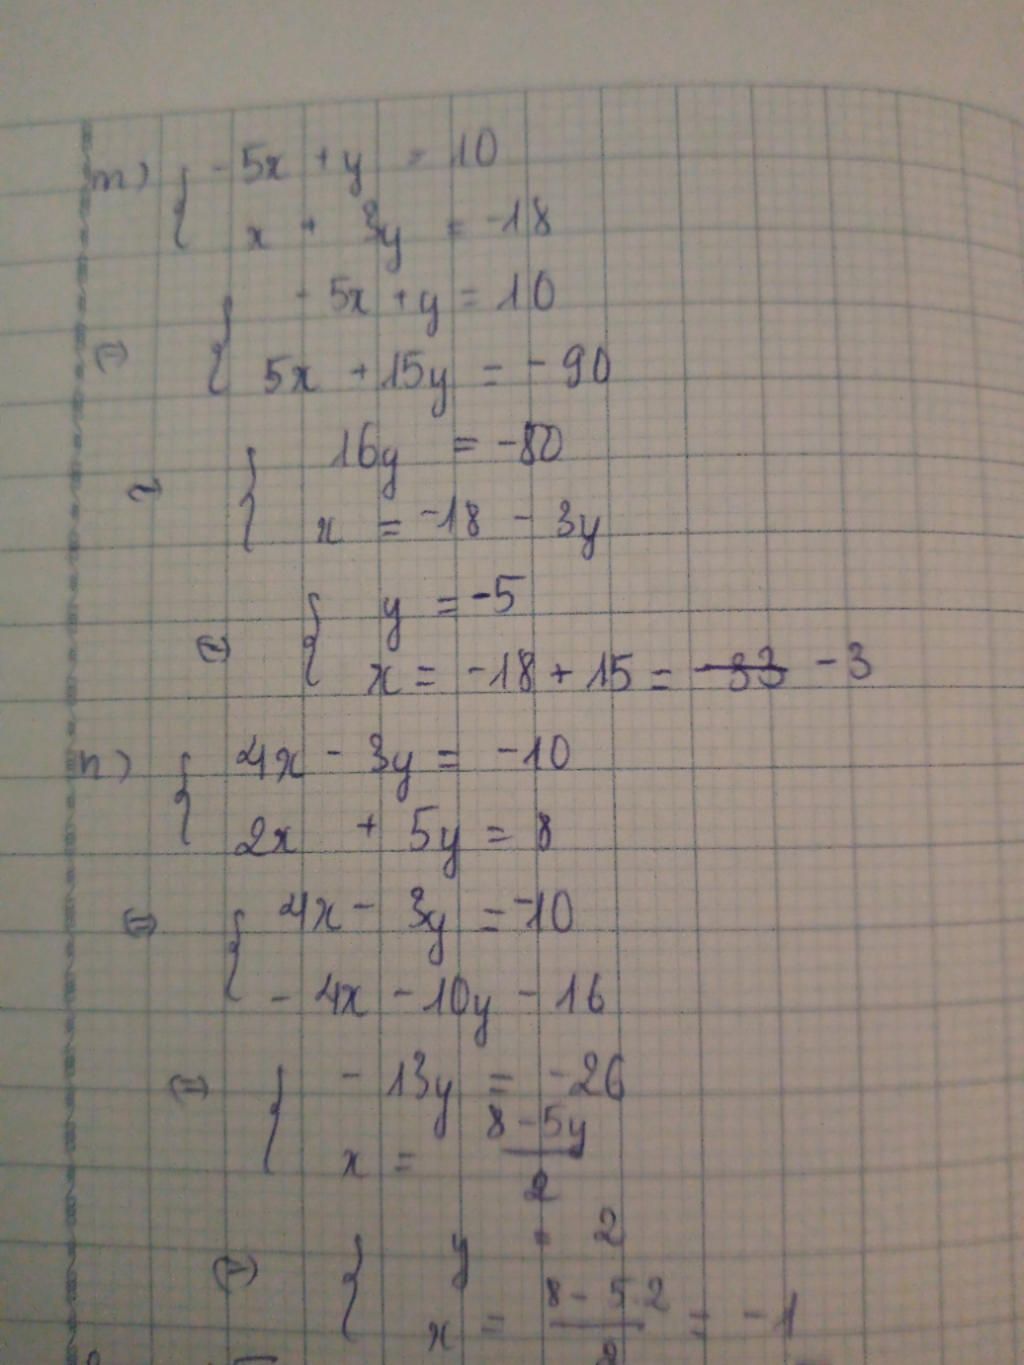 m) { -5x + y = 10
x + 3y = -18
⇔ { -5x + y = 10
5x + 15y = -90
⇔ { 16y = -80
x = -18 - 3y
⇔ { y = -5
x = -18 + 15 = -33 -3
n) { 4x - 3y = -10
2x + 5y = 8
⇔ { 4x - 3y = -10
- 4x - 10y - 16
⇔ { - 13y = -26
x = 8 - 5y / 2
⇔ { y = 2
x = 8 - 5.2 / 2 = -1